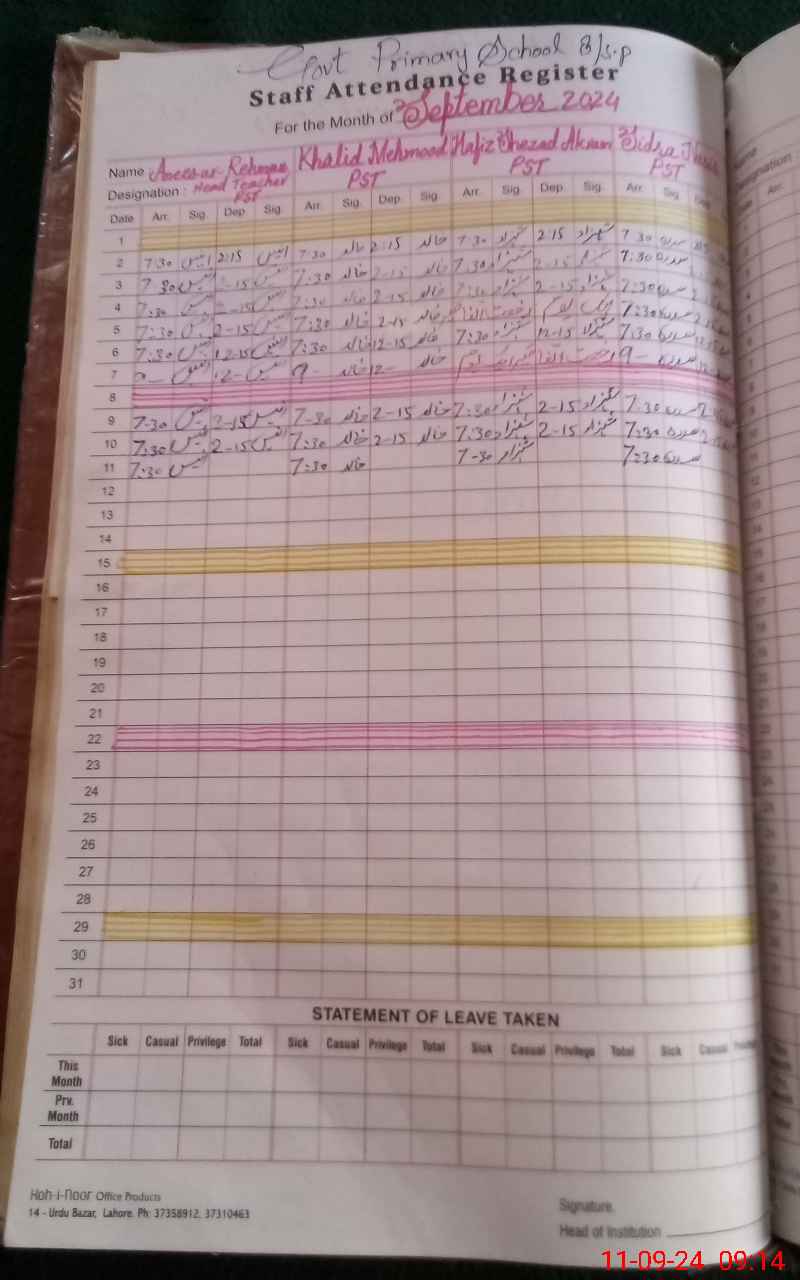 Govt Primary School 8/s.p
Staff Attendance Register
For the Month of September 2024
Name Anees-ur-Rehman Khalid Mehmood Hafiz Shezad Akram Sidra
Designation : Head Teacher PST PST PST PST
Date Arr. Sig. Dep. Sig. Arr. Sig. Dep. Sig. Arr. Sig. Dep. Sig. Arr. Sig. Dep.
1
2 7:30 انیس 2:15 انیس 7:30 خالد 2:15 خالد 7:30 شہزاد 2:15 شہزاد 7:30 سدرہ
3 7:30 انیس 2-15 انیس 7:30 خالد 2-15 خالد 7:30 شہزاد 2-15 شہزاد 7:30 سدرہ
4 7:30 انیس 2-15 انیس 7:30 خالد 2-15 خالد 7:30 شہزاد 2-15 شہزاد 7:30 سدرہ
5 7:30 انیس 2-15 انیس 7:30 خالد 2-15 خالد رخصت اتفاقیہ 7:30 سدرہ
6 7:30 انیس 12-15 انیس 7:30 خالد 12-15 خالد 7:30 شہزاد 12-15 شہزاد 7:30 سدرہ
7 انیس 12- انیس 9- خالد 12- خالد رخصت اتفاقیہ 9- سدرہ
8
9 7-30 انیس 2-15 انیس 7-30 خالد 2-15 خالد 7:30 شہزاد 2-15 شہزاد 7:30 سدرہ
10 7:30 انیس 2-15 انیس 7:30 خالد 2-15 خالد 7:30 شہزاد 2-15 شہزاد 7:30 سدرہ
11 7:30 انیس 7:30 خالد 7-30 شہزاد 7:30 سدرہ
12
13
14
15
16
17
18
19
20
21
22
23
24
25
26
27
28
29
30
31
STATEMENT OF LEAVE TAKEN
Sick Casual Privilege Total Sick Casual Privilege Total Sick Casual Privilege Total Sick Casual
This Month
Prv. Month
Total
Koh-i-noor Office Products
14 - Urdu Bazar, Lahore. Ph: 37358912, 37310463
Signature
Head of Institution
11-09-24 09:14